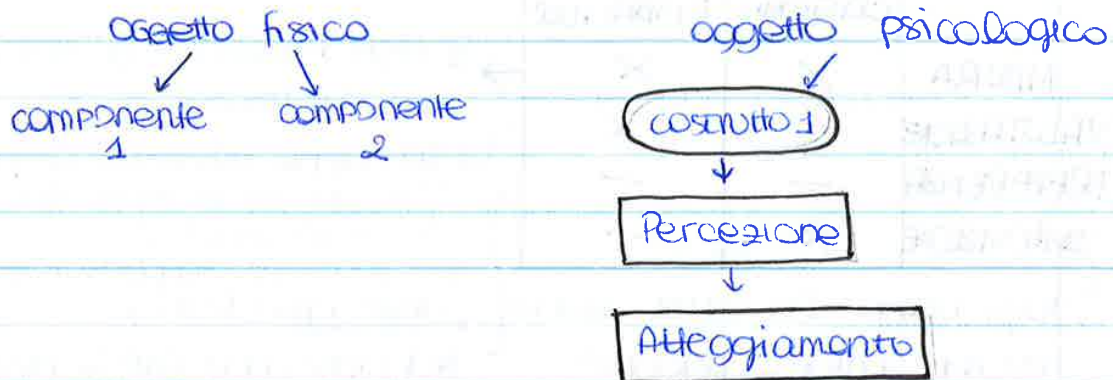 oggetto fisico
componente 1
componente 2
oggetto psicologico
costrutto 1
Percezione
Atteggiamento